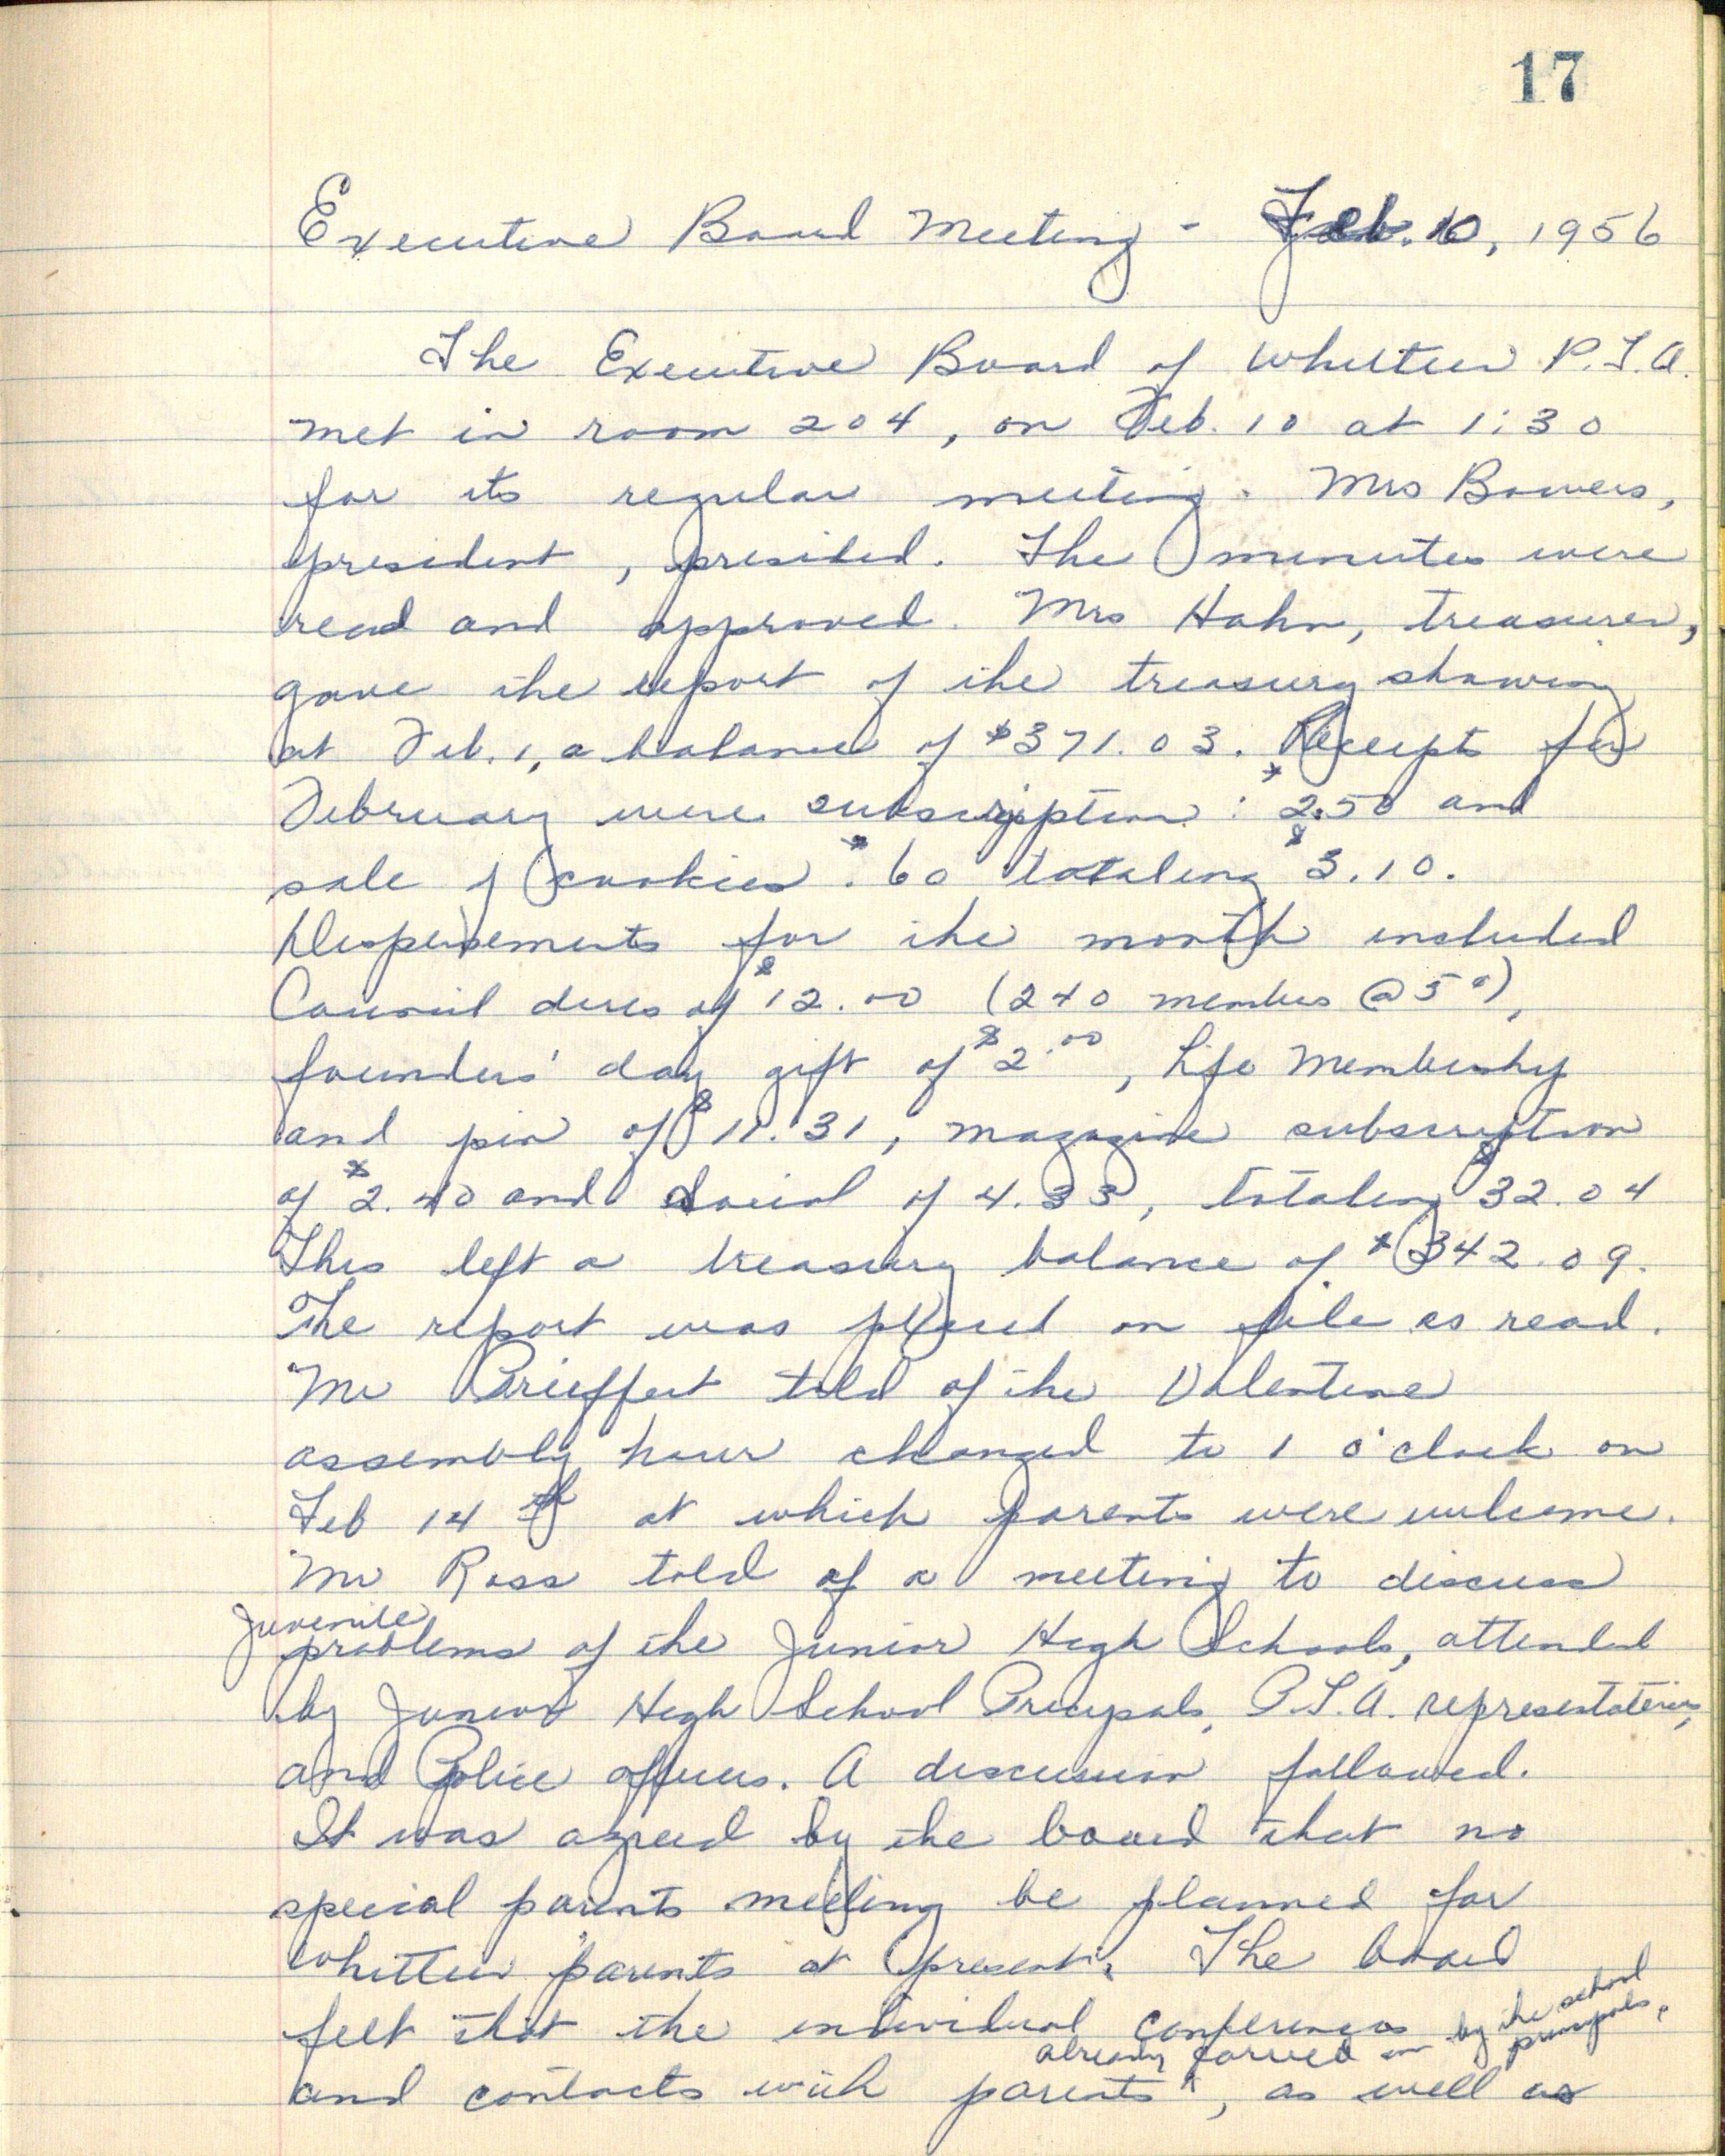 17
Executive Board Meeting - Feb. 10, 1956
The Executive Board of Whittier P.T.A.
met in room 204, on Feb. 10 at 1:30
for its regular meeting. Mrs Bowers,
president, presided. The minutes were
read and approved. Mrs Hahn, treasurer,
gave the report of the treasury showing
at Feb. 1, a balance of $371.03. Receipts for
February were subscription: $2.50 and
sale of cookies $.60 totaling $3.10.
Dispersements for the month included
Council dues of $12.00 (240 members @ 5¢),
founders' day gift of $2.00, Life Membership
and pin of $11.31, magazine subscription
of $2.40 and Social of 4.33, totaling $32.04
This left a treasury balance of $342.09.
The report was placed on file as read.
Mr told of the Valentine
assembly hour changed to 1 o'clock on
Feb 14th at which parents were welcome.
Mr Ross told of a meeting to discuss
juvenile
problems of the Junior High Schools, attended
by Junior High School Principals, P.T.A. representatives,
and Police officers. A discussion followed.
It was agreed by the board that no
special parents meeting be planned for
Whittier parents at present. The board
felt that the individual conferences
already carried on by the school principals,
and contacts with parents^, as well as